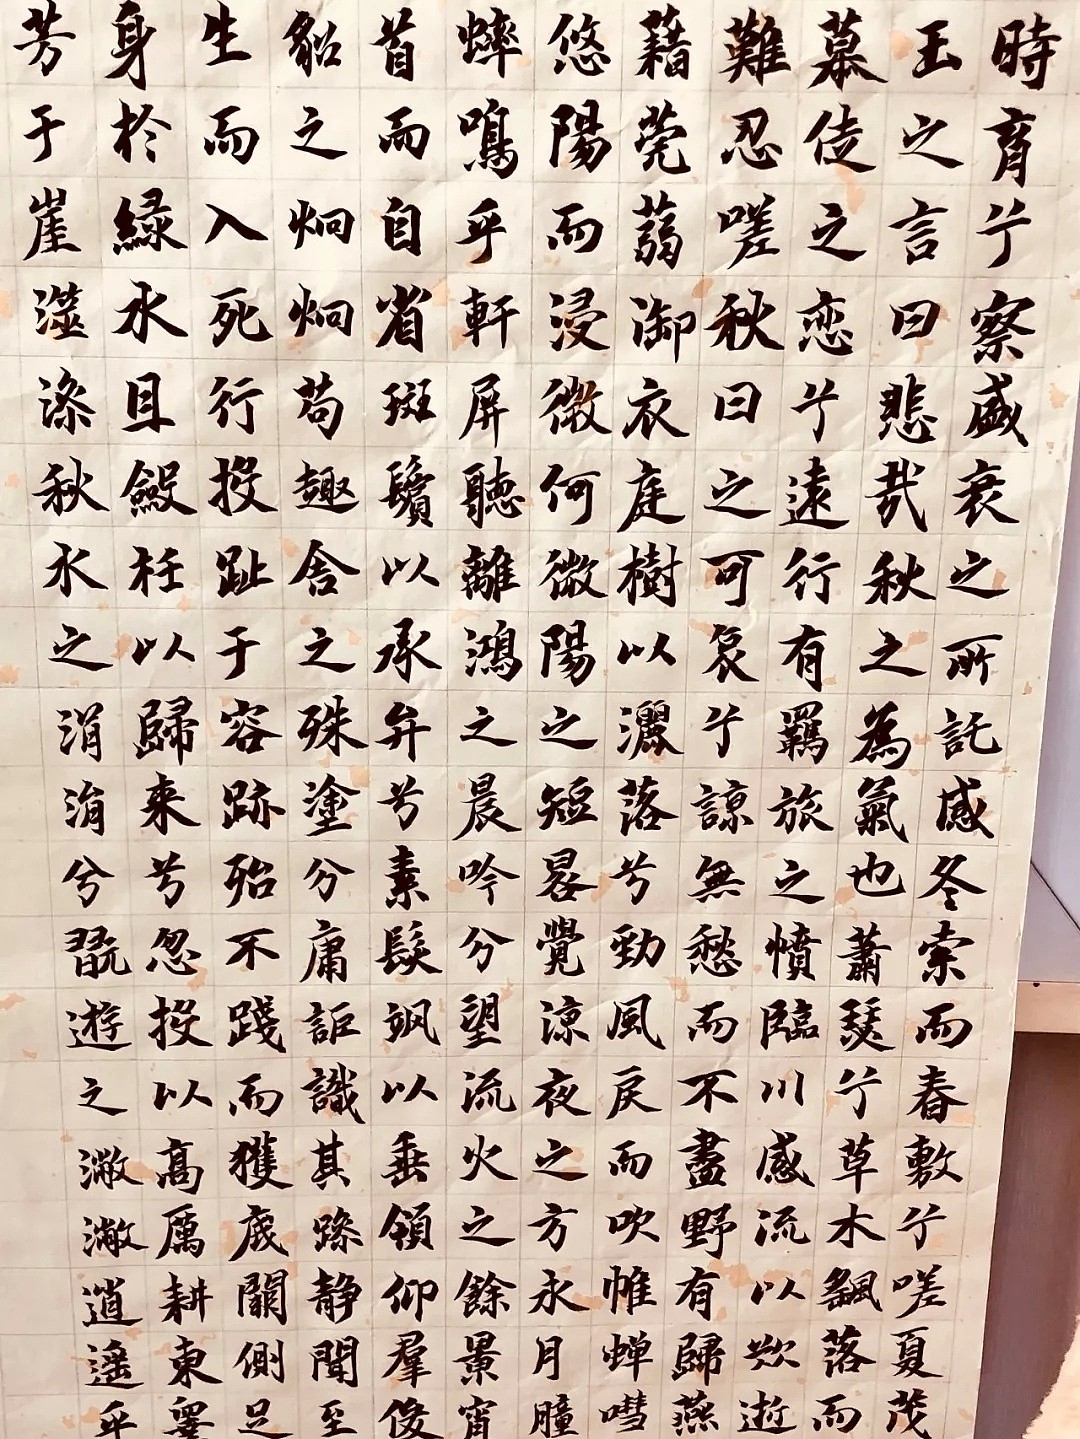 時育兮察盛衰之所託感冬索而春敷兮嗟夏茂
玉之言曰悲哉秋之為氣也蕭瑟兮草木飖落而
慕徒之恋兮遠行有羈旅之憤臨川感流以歎逝
難忍嗟秋日之可哀兮諒無愁而不盡野有歸燕
藉莞蒻御衣庭樹以灑落兮勁風戾而吹帷蝉嘒
悠陽而浸微何微陽之短晷覺涼夜之方永月朣
蟀鳴乎軒屏聽離鴻之晨吟兮望流火之餘景宵
首而自省斑鬢以承弁兮素髮颯以垂領仰羣俊
貂之炯炯苟趣舍之殊塗兮庸詎識其躁静聞至
生而入死行投趾于容跡殆不踐而獲底闚側足
身於緑水且斂衽以歸来兮忽投以高厲耕東皋
芳于崖澨澡秋水之涓涓兮翫遊之潎潎逍遥乎